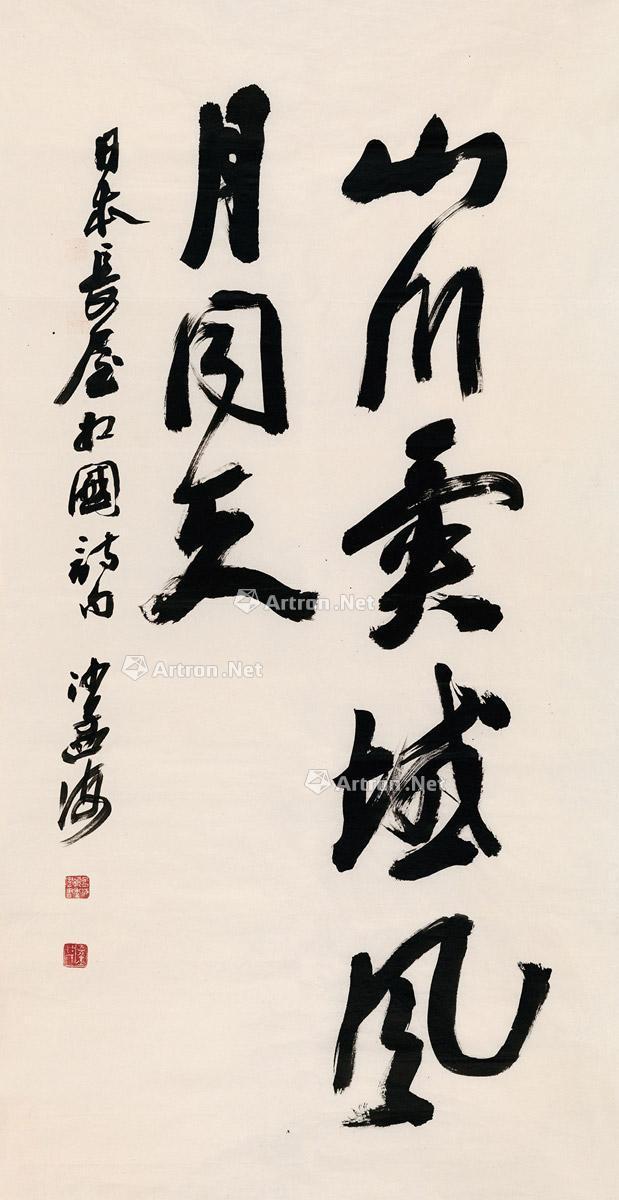 山川異域風
月同天
日本長屋相國詩句 沙孟海
Artron.Net
Artron.Net
Artron.Net